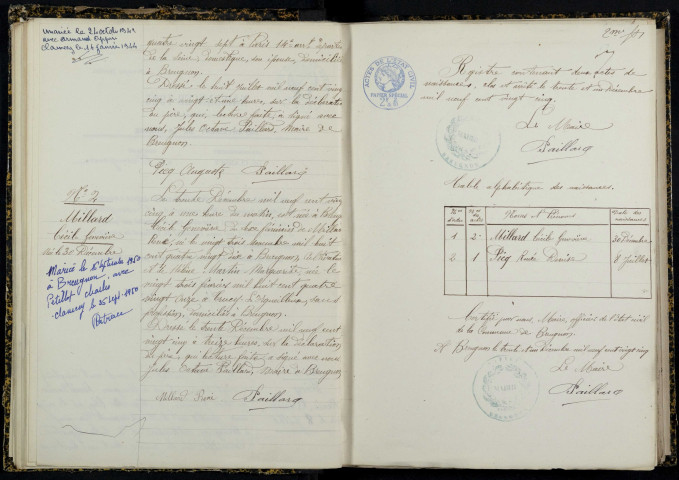 mariée le 24 octobre 1942
avec Armand
Clamecy le 16 janvier 1944
quatre vingt sept à Paris 14e arrt
de la Seine, domestique, son épouse domiciliés
à Breugnon.
Dressé le huit Juillet mil neuf cent vingt
cinq à heures, sur la déclaration
du père, qui, lecture faite, a signé avec
nous, Jules Octave Paillard, Maire de
Breugnon.
Pecq Auguste Paillard
No 2
Millard
Cécile Geneviève
née le 30 Décembre
Mariée le 16 septembre 1950
à Breugnon, avec
Petillot Charles
Clamecy le 25 sept. 1950
Le trente Décembre mil neuf cent vingt
cinq, à une heure du matin, est née à
Cécile Geneviève du sexe féminin de Millard
René, né le vingt trois novembre mil huit
cent quatre vingt dix à Breugnon,
et Martin Marguerite, née le
vingt trois janvier mil huit cent quatre
vingt treize à sans
profession, domiciliés à Breugnon.
Dressé le trente Décembre mil neuf cent
vingt cinq à treize heures, sur la déclaration
du père, qui, lecture faite, a signé avec nous
Jules Octave Paillard, maire à Breugnon
Millard René Paillard
ACTES DE L'ÉTAT CIVIL
PAPIER SPÉCIAL
Registre contenant deux actes de
naissances, clos et arrêté le trente et un décembre
mil neuf cent vingt cinq.
Le Maire
Paillard
Table alphabétique des naissances.
Nos d'ordre Nos des actes Noms et Prénoms Date des naissances
1 2 Millard Cécile Geneviève 30 Décembre
2 1 Pecq 8 Juillet
Certifié par nous Maire, officier de l'Etat civil
de la Commune de Breugnon.
A Breugnon le trente et un Décembre mil neuf cent vingt cinq
Le Maire
Paillard